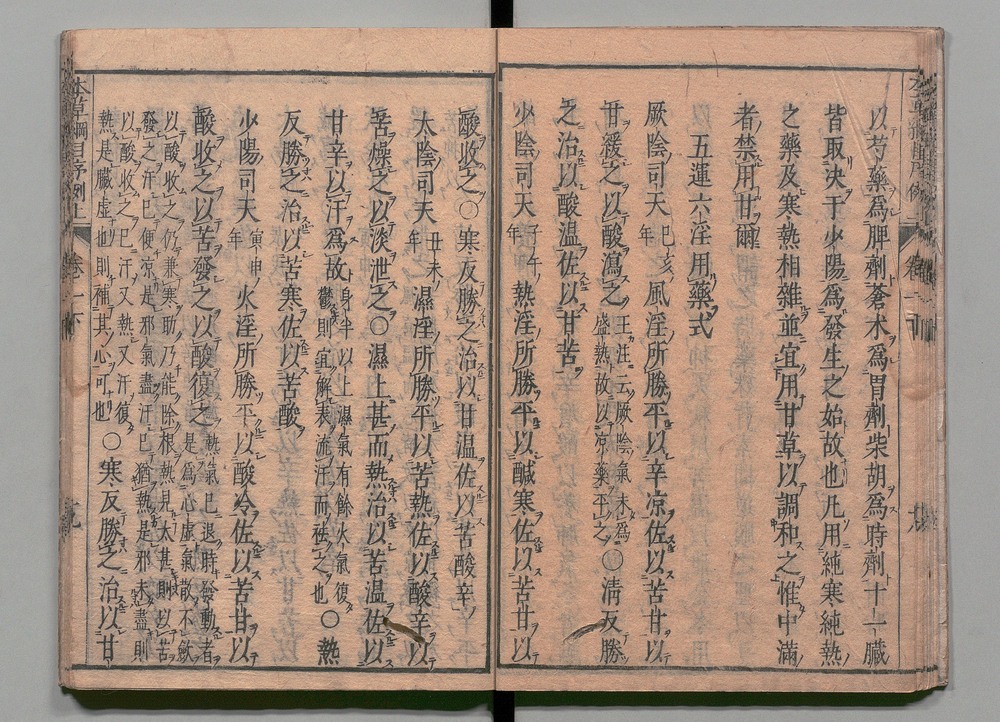 以芍藥爲脾劑蒼木爲胃劑柴胡爲時劑十一臟
皆取决于少陽爲發生之始故也凢用純寒純熱
之藥及寒熱相雜並宜用甘草以調和之惟中滿
者禁用甘爾
五運六淫用藥式
厥陰司天巳亥年風淫所勝平以辛凉佐以苦甘以
甘緩之以酸瀉之王注云厥陰氣未爲盛熱故以凉藥平之〇淸反勝
之治以酸温佐以甘苦
少陰司天子午年熱淫所勝平以鹹寒佐以苦甘以
酸收之〇寒反勝之治以甘温佐以苦酸辛
太陰司天丑未年濕淫所勝平以苦熱佐以酸辛以
苦燥之以淡泄之〇濕上甚而熱治以苦温佐以
甘辛以汗爲故身半以上濕氣有餘火氣復鬱則宜解表流汗而祛之也〇熱
反勝之治以苦寒佐以苦酸
少陽司天寅申年火淫所勝平以酸冷佐以苦甘以
酸收之以苦發之以酸復之熱氣已退時發動者是爲心虚氣散不斂
以酸收之仍兼寒助乃能除根熱見太甚則以苦
發之汗已便凉是邪氣盡汗已猶熱是邪未盡則
以酸收之已汗又熱又汗復
熱是臟虚也則補其心可也〇寒反勝之治以甘
本草綱目序例上
卷一下